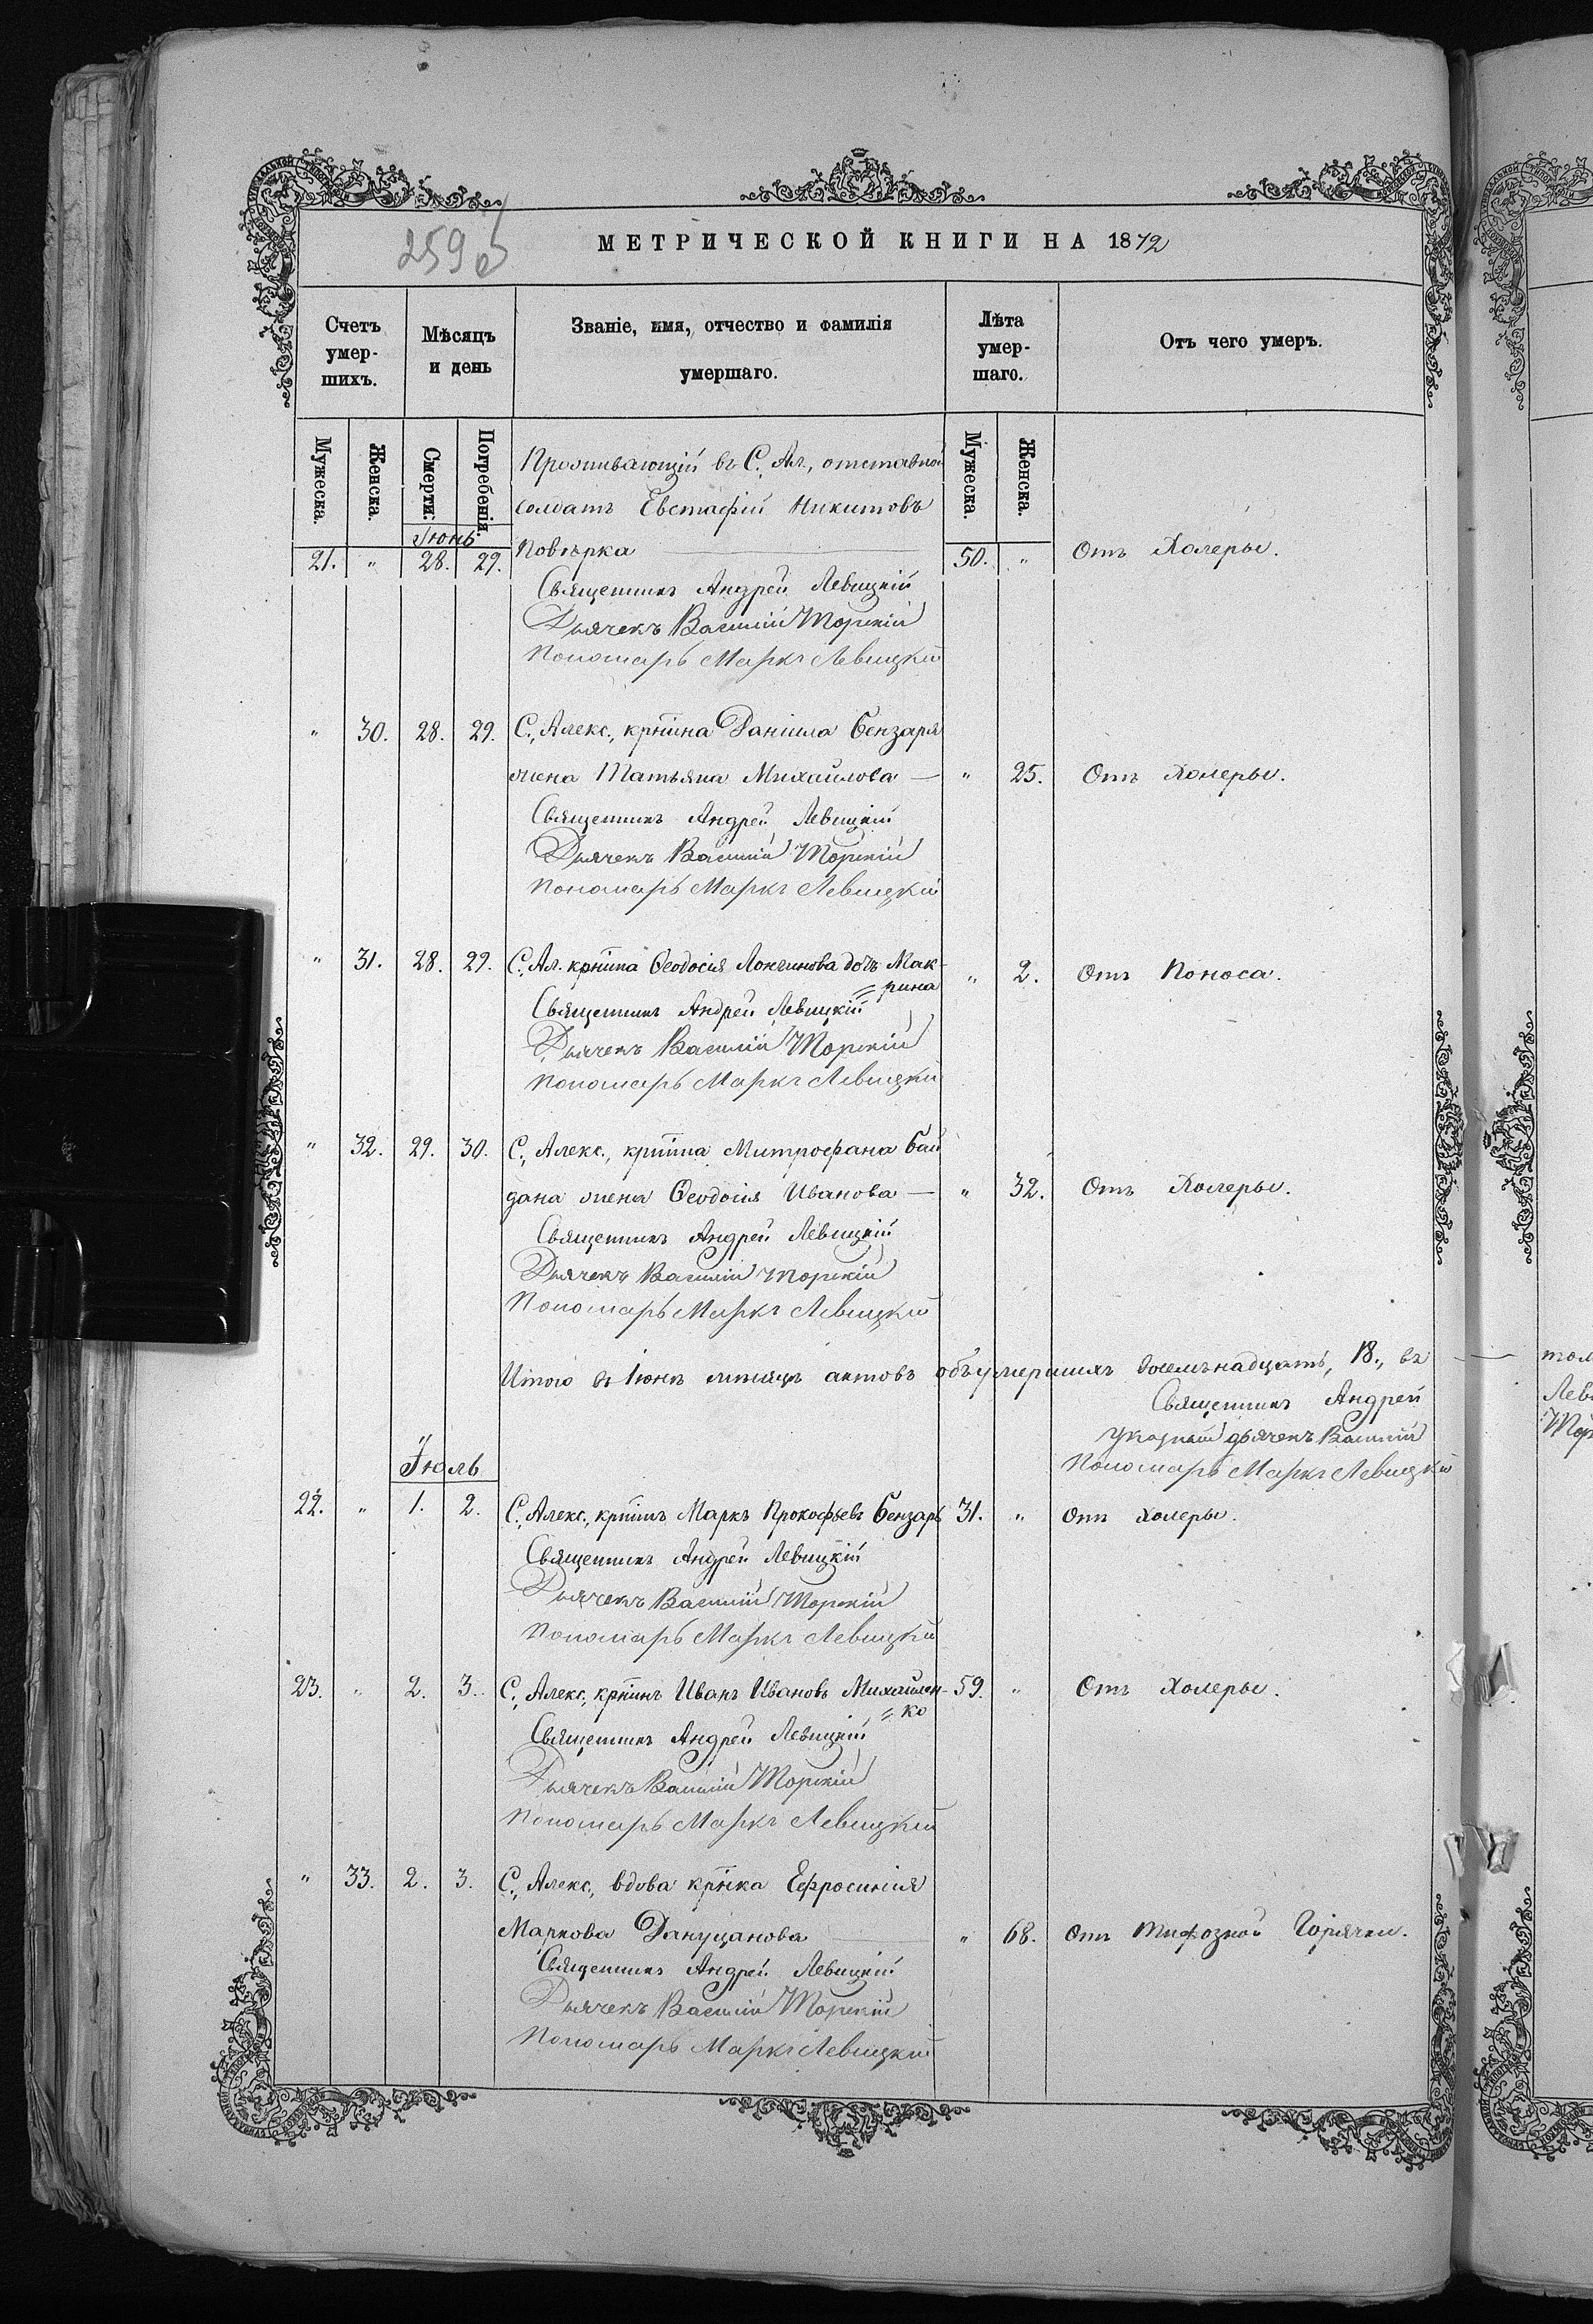 259 об
МЕТРИЧЕСКОЙ КНИГИ НА 1872
Счетъ умер-шихъ.
Мѣсяцъ и день
Званіе, имя, отчество и фамилія умершаго.
Лѣта умер-шаго.
Отъ чего умеръ.
Мужеска.
Женска.
Смерти.
Погребенія.
Мужеска.
Женска.
Проживающій въ С. Ал., отставной
солдатъ Евстафій Никитовъ
Іюнь
21. " 28. 29. Повѣрка 50. " Отъ Холеры.
Священникъ Андрей Левицкій
Дьячекъ Василій Торскій
Пономарь Маркъ Левицкій
" 30. 28. 29. С., Алекс., крѣина Даніила Бензаря
жена Татьяна Михайлова — " 25. Отъ Холеры.
Священникъ Андрей Левицкій
Дьячекъ Василій Торскій
Пономарь Маркъ Левицкій
" 31. 28. 29. С., Ал. крѣина Ѳеодосія Лонгинова дочь Мак-
=рина " 2. Отъ Поноса.
Священникъ Андрей Левицкій
Дьячекъ Василій Торскій
Пономарь Маркъ Левицкій
" 32. 29. 30. С., Алекс., крѣина Митрофана Бай
дана жена Ѳеодосія Иванова — " 32. Отъ Холеры.
Священникъ Андрей Левицкій
Дьячекъ Василій Торскій
Пономарь Маркъ Левицкій
Итого въ Іюнѣ мѣсяцѣ актовъ объумершихъ восемьнадцать, 18., въ
Священникъ Андрей
Указный дьячекъ Василій
Пономарь Маркъ Левицкій
Іюль
22. " 1. 2. С., Алекс., крѣинъ Маркъ Прокофьевъ Бензарь 31. " Отъ Холеры.
Священникъ Андрей Левицкій
Дьячекъ Василій Торскій
Пономарь Маркъ Левицкій
23. " 2. 3. С., Алекс., крѣинъ Иванъ Ивановъ Михайлен- 59. " Отъ Холеры.
=ко
Священникъ Андрей Левицкій
Дьячекъ Василій Торскій
Пономарь Маркъ Левицкій
" 33. 2. 3. С., Алекс., вдова крѣнка Ефросинія
Маркова Дануцанова " 68. Отъ Тифозной Горячки.
Священникъ Андрей Левицкій
Дьячекъ Василій Торскій
Пономарь Маркъ Левицкій